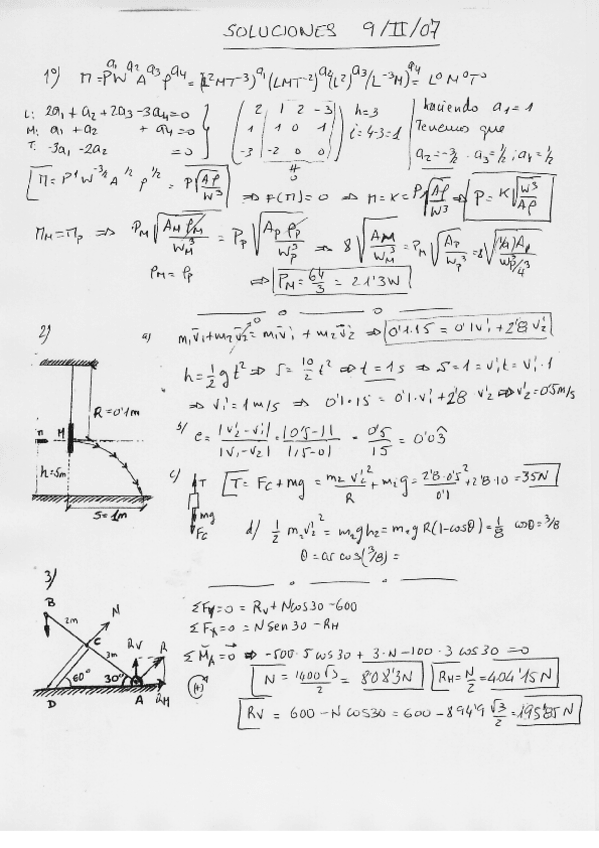 SOLUCIONES 9/II/07
1º) Π = P^a1 W^a2 A^a3 ρ^a4 = (L²MT⁻³)^a1 (LMT⁻²)^a2 (L²)^a3 (L⁻³M)^a4 = L⁰M⁰T⁰
L: 2a₁ + a₂ + 2a₃ - 3a₄ = 0
M: a₁ + a₂ + a₄ = 0
T: -3a₁ - 2a₂ = 0
2 1 2 -3
1 1 0 1
-3 -2 0 0
h=3
i=4-3=1
haciendo a₁=1
Tenemos que
a₂=-3/2 · a₃=1/2; a₄=1/2
Π = P¹ W^-3/2 A^1/2 ρ^1/2 = P√(Aρ/W³) ⇒ F(Π)=0 ⇒ Π=K=P√(Aρ/W³) ⇒ P = K√(W³/Aρ)
Π_M = Π_P ⇒ P_M √(A_M ρ_M/W_M³) = P_P √(A_P ρ_P/W_P³) ⇒ 8√(A_M/W_M³) = P_M √(A_P/W_P³) = 8√((1/4)A_P/W_P³/4³)
ρ_M = ρ_P ⇒ P_M = 64/3 = 21'3W
2) a) m₁v₁+m₂v₂ = m₁v₁' + m₂v₂' ⇒ 0'1·15 = 0'1v₁' + 2'8 v₂'
h = 1/2 g t² ⇒ 5 = 10/2 t² ⇒ t = 1s ⇒ S = 1 = v₁'t = v₁'·1
⇒ v₁' = 1 m/s ⇒ 0'1·15 = 0'1·v₁' + 2'8 v₂' ⇒ v₂' = 0'5 m/s
R=0'1m
n M
h=5m
S=1m
b) e = |v₂'-v₁'|/|v₁-v₂| = |0'5-1|/|15-0| = 0'5/15 = 0'03
c) T mg Fc
T = Fc + mg = m₂v₂'²/R + m₂g = 2'8·0'5²/0'1 + 2'8·10 = 35N
d) 1/2 m₂v₂'² = m₂gh₂ = m₂gR(1-cosθ) = 1/8 cosθ = 3/8
θ = arc cos(3/8) =
3)
B 2m C 3m N R_V R
D 60° 30° A R_H
ΣF_Y=0 = R_V + N cos30 - 600
ΣF_X=0 = N sen30 - R_H
ΣM_A=0 ⇒ -500·5 cos30 + 3·N - 100·3 cos30 = 0
(+)
N = 1400√3/2 = 808'3N R_H = N/2 = 404'15 N
R_V = 600 - N cos30 = 600 - 894'9 √3/2 = 195'85 N